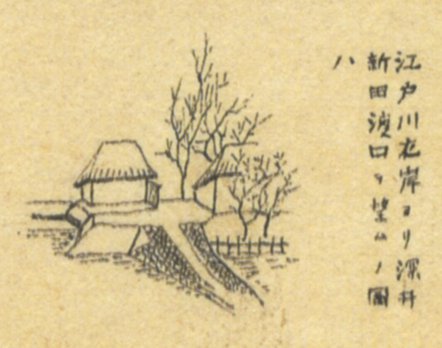 江戸川右岸ヨリ深井
新田渡口ヲ望ムノ圖
ハ